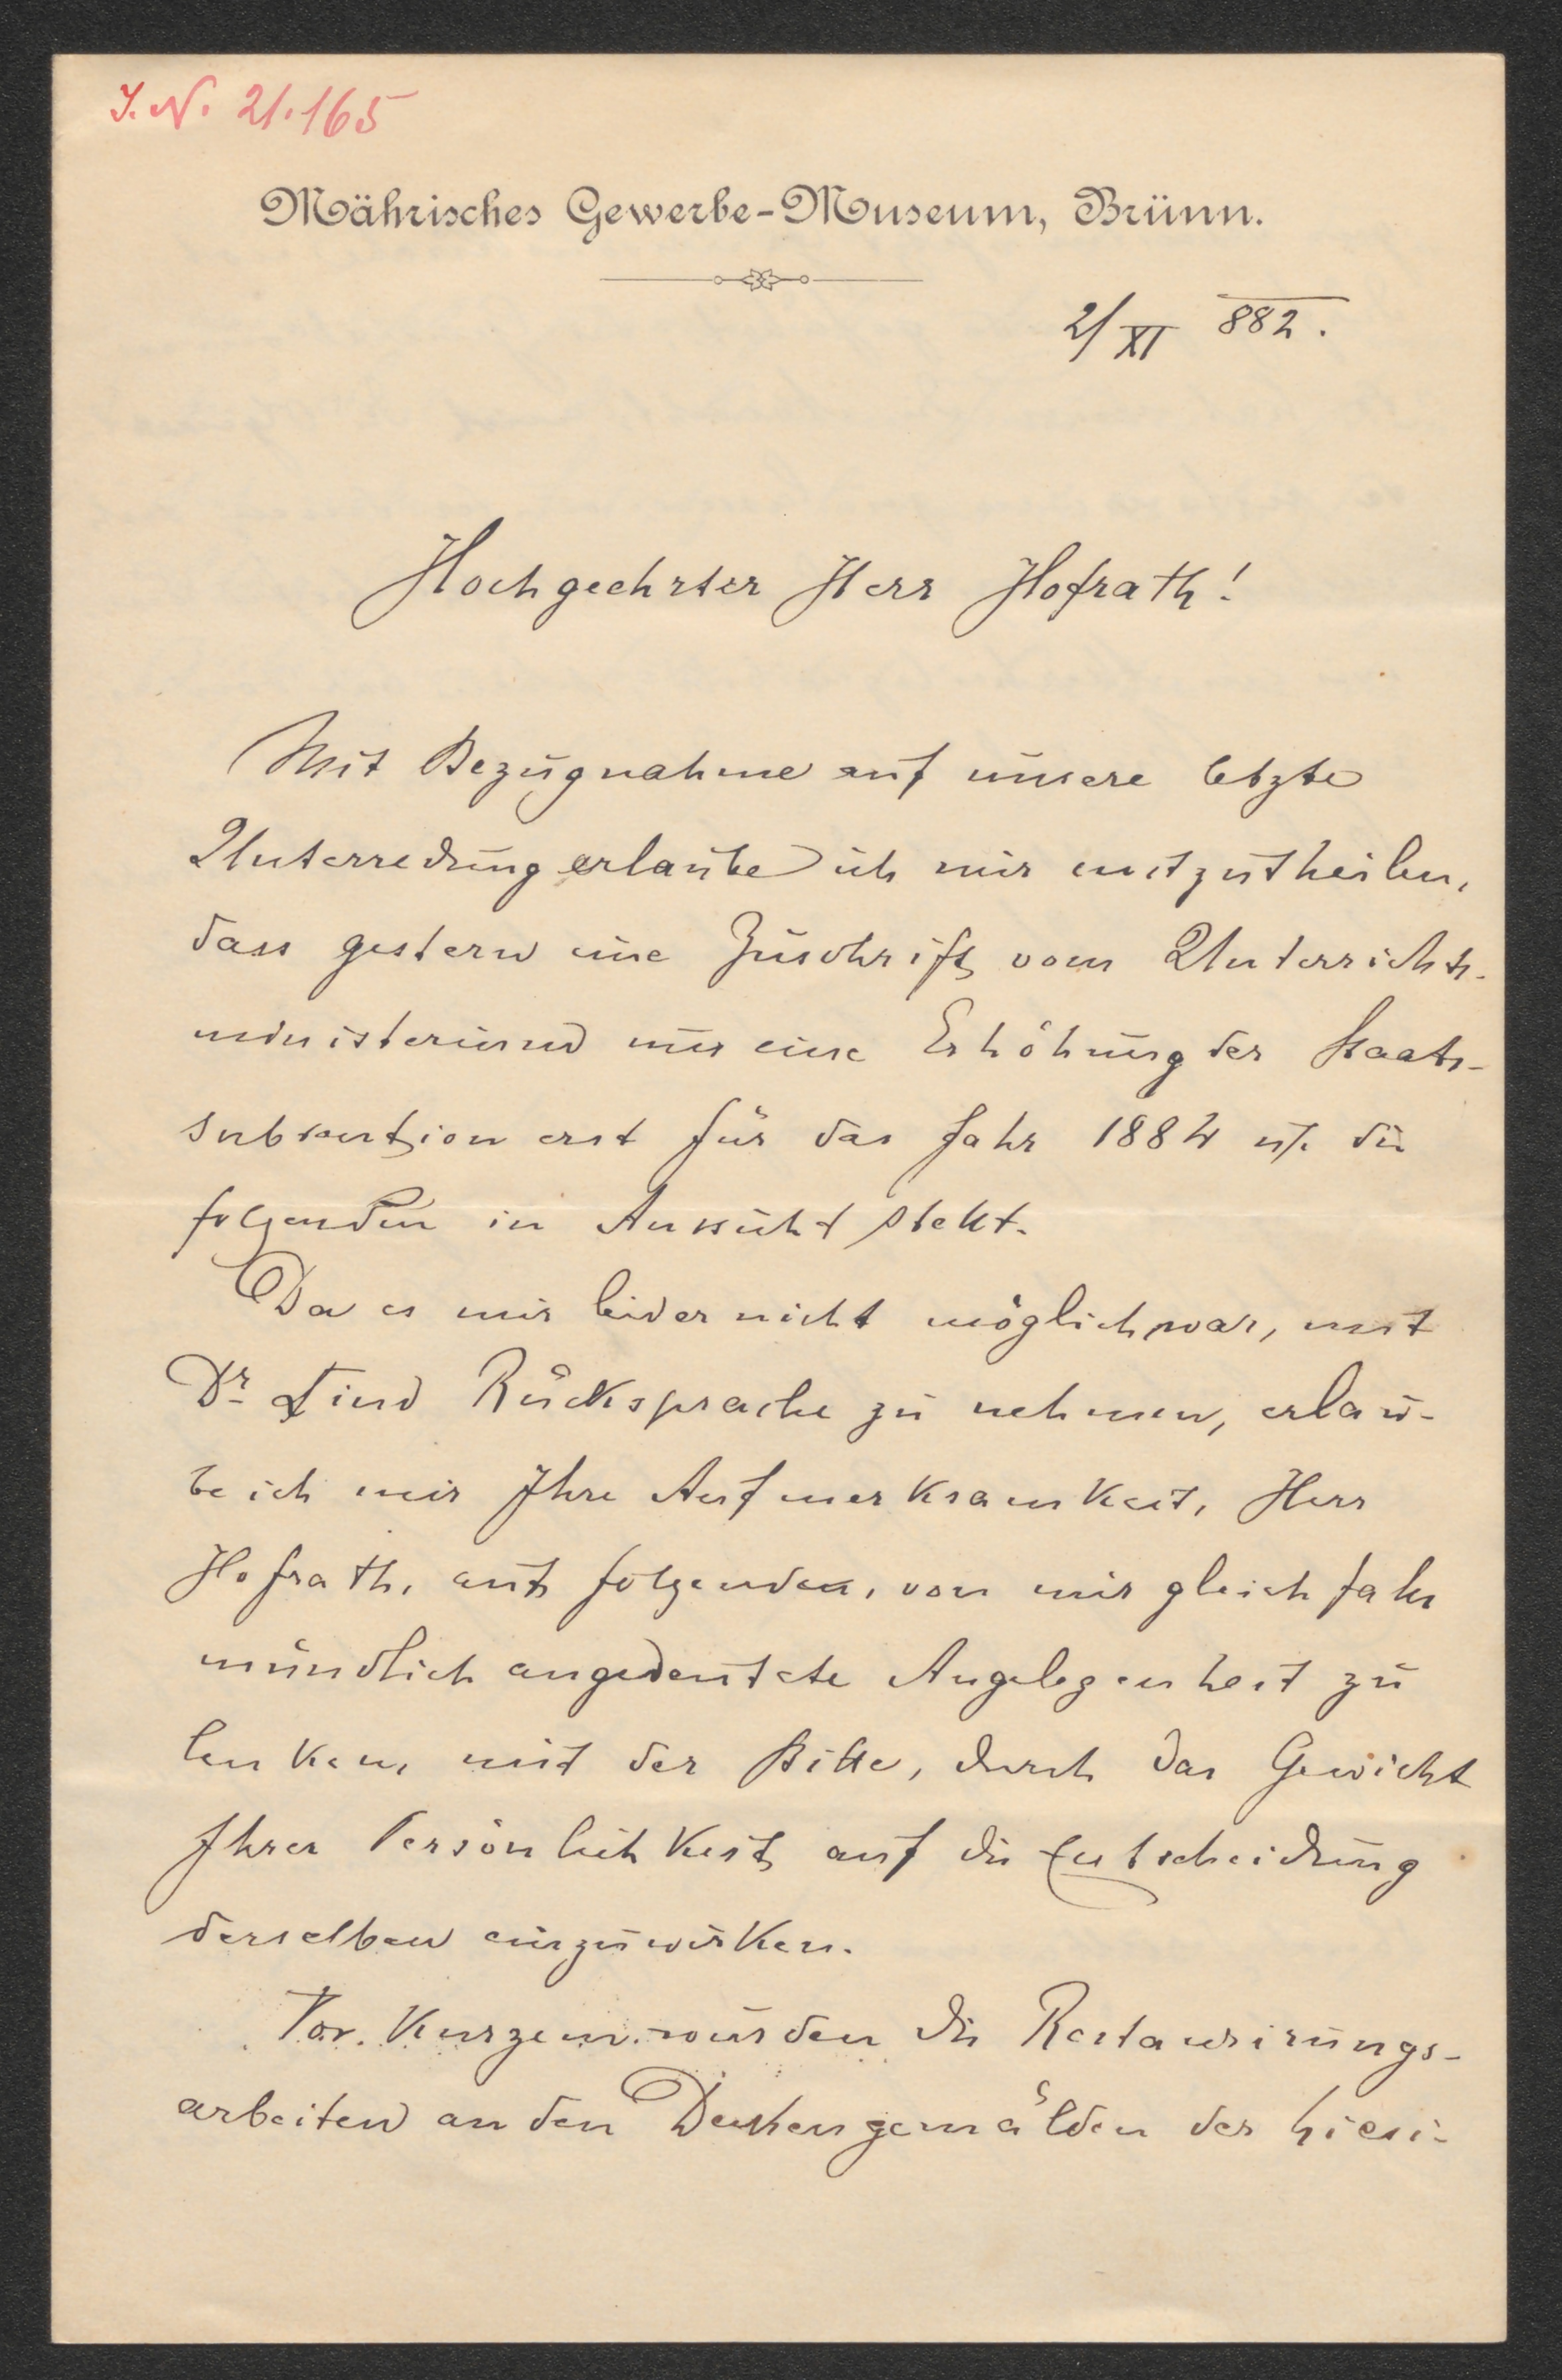 J. N. 21.165
Mährisches Gewerbe-Museum, Brünn.
2/XI 882.
Hochgeehrter Herr Hofrath!
Mit Bezugnahme auf unsere letzte
Unterredung erlaube ich mir mitzutheilen,
dass gestern eine Zuschrift vom Unterrichts-
ministerium uns eine Erhöhung der Staats-
subvention erst für das Jahr 1884 u. die
folgenden in Aussicht stellt.
Da es mir leider nicht möglich war, mit
Dr. Lind Rücksprache zu nehmen, erlau-
be ich mir Ihre Aufmerksamkeit, Herr
Hofrath, auf folgende, von mir gleichfalls
mündlich angedeutete Angelegenheit zu
lenken, mit der Bitte, durch das Gewicht
Ihrer Persönlichkeit auf die Entscheidung
derselben einzuwirken.
Vor Kurzem wurden die Restaurirungs-
arbeiten an den Deckengemälden der hiesi-